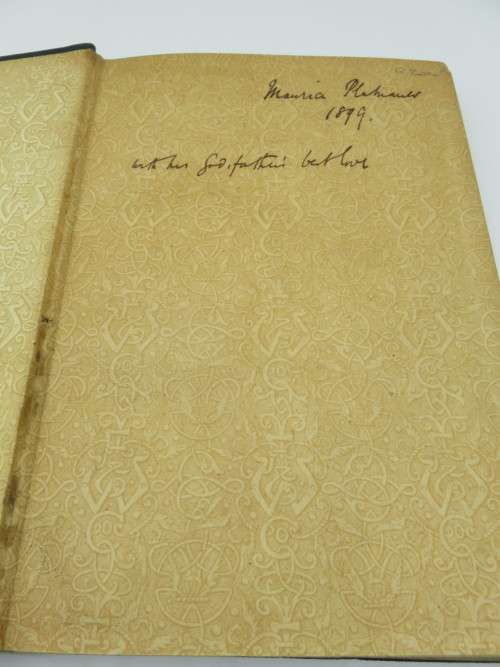 Maurice Platnauer
1899.
with his Godfather's best love